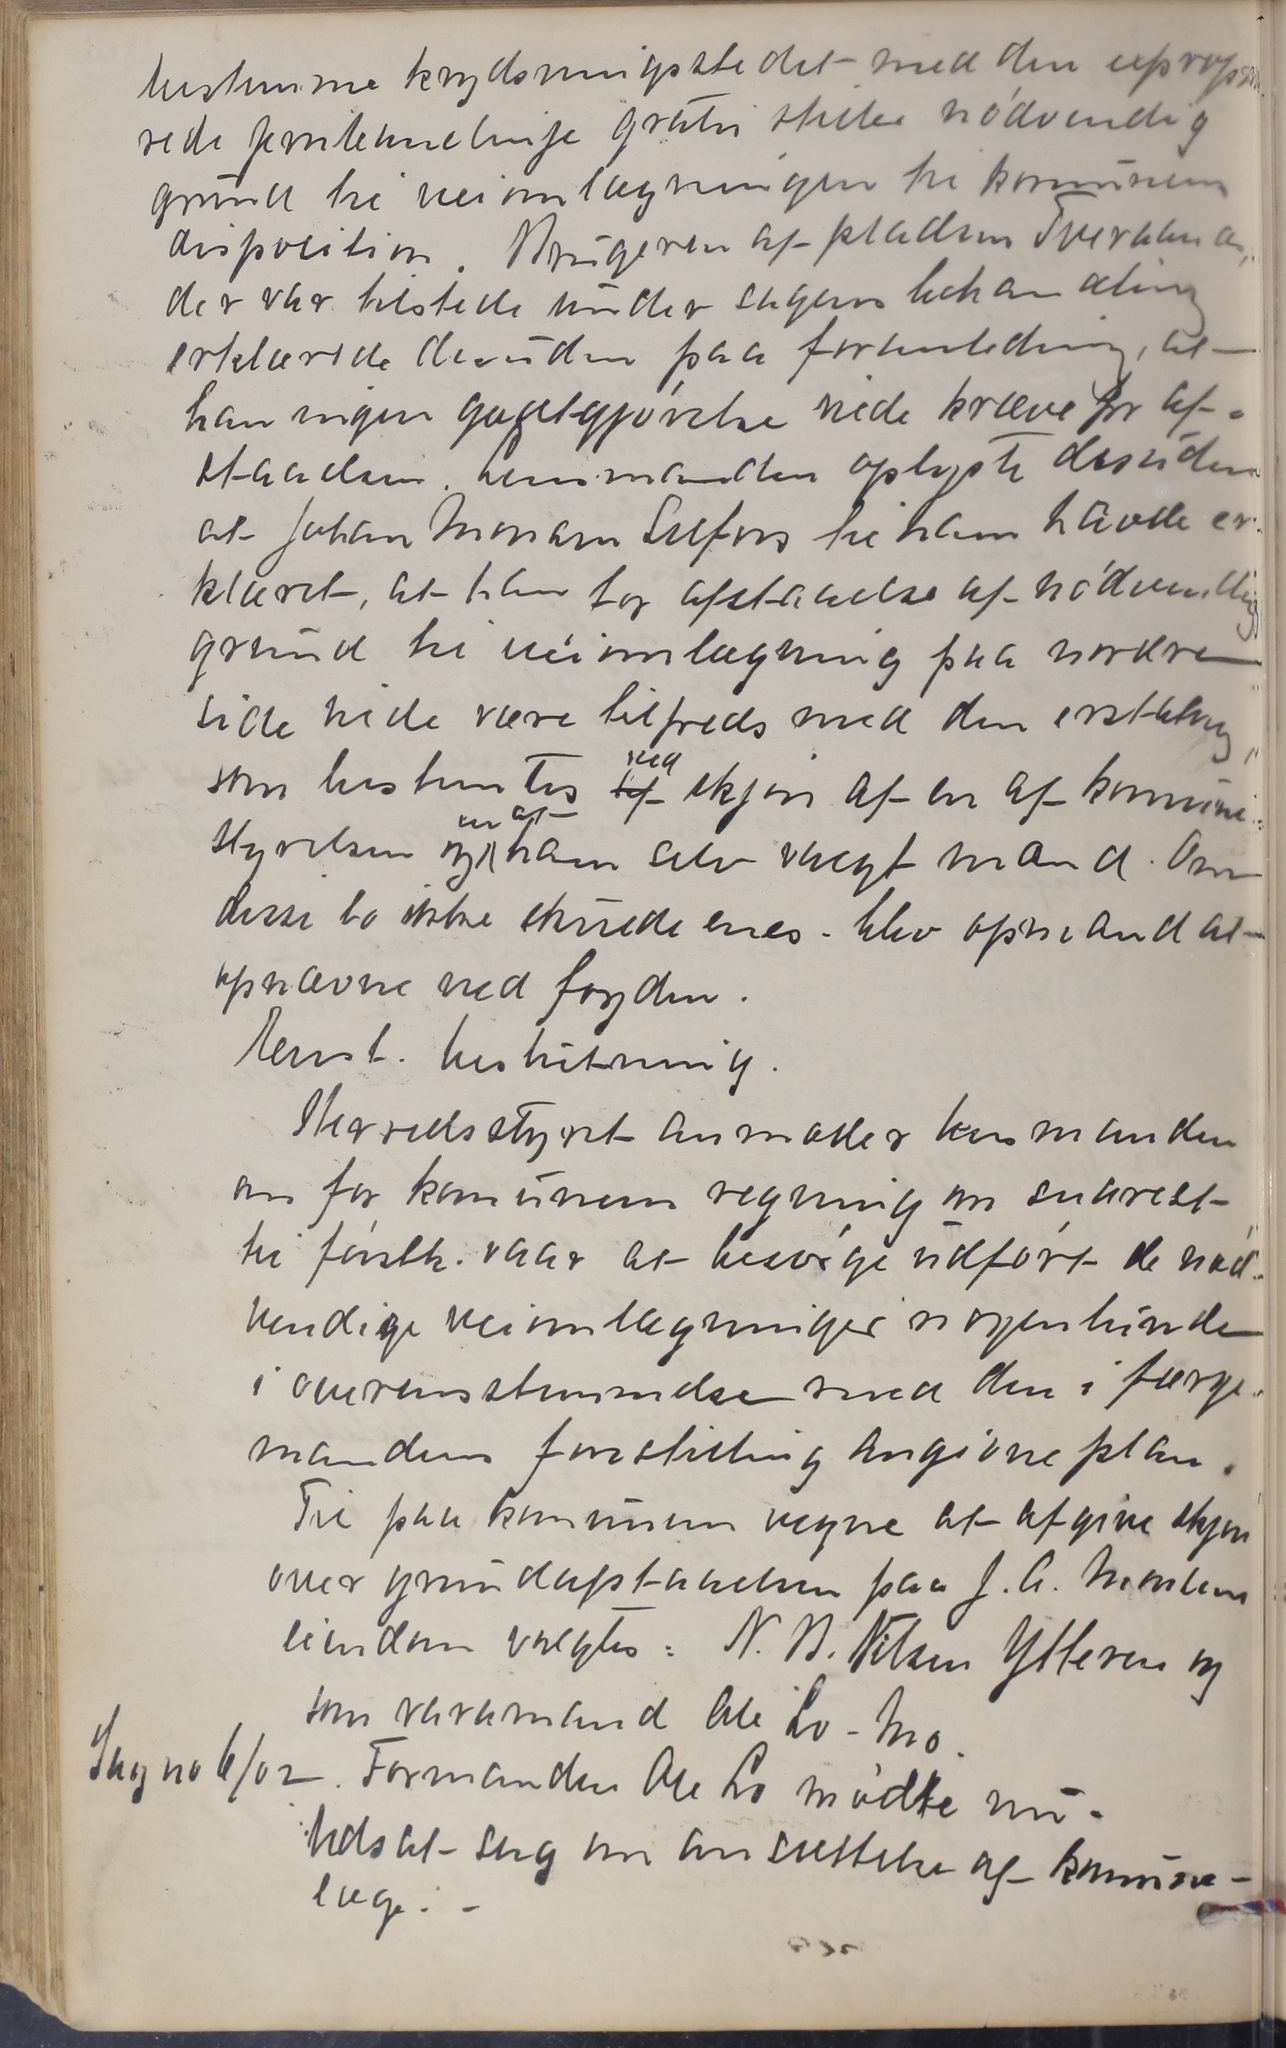 bestemme krydsningsstedet med den exprop
rede jernbanelinje gratis stille nödvendig
grund til veiomlægningen til komunens
disposition. Brugeren af pladsen Tveraanes,
der var tilstede under sagens behandling
erklærede desuden paa foranledning, at
han ingen godtgjörelse vilde kræve for af-
staaelsen. Lensmanden oplyste desuden
at Johan Monsen Selfors til ham havde er-
klæret, at han for afstaaelse af nödvendig
grund til veiomlægning paa nordre
side vilde være tilfreds med den erstatning,
som bestemtes ved skjön af en af komune-
styrelsen og en af ham selv valgt mand. Om
disse to ikke skulde enes, blev opmand at
opnævne ved fogden.
Enst. beslutning.
Herredsstyret anmoder lensmanden
om for komunens regning om snarest
til förstk. vaar at besörge udfört de nöd-
vendige veiomlægninger nogenlunde
i overensstemmelse med den i færge-
mandens forestilling angivne plan.
Til paa komunens vegne at afgive skjön
over grundafstaaelsen paa J. A. Monsens
eiendom valgtes: N. B. Nilsen Ytteren og
som varamand Ole Lo - Mo.
Sag no 6/02. Formanden Ole Lo mödte nu.
Udsat sag om ansættelse af komune-
læge. -